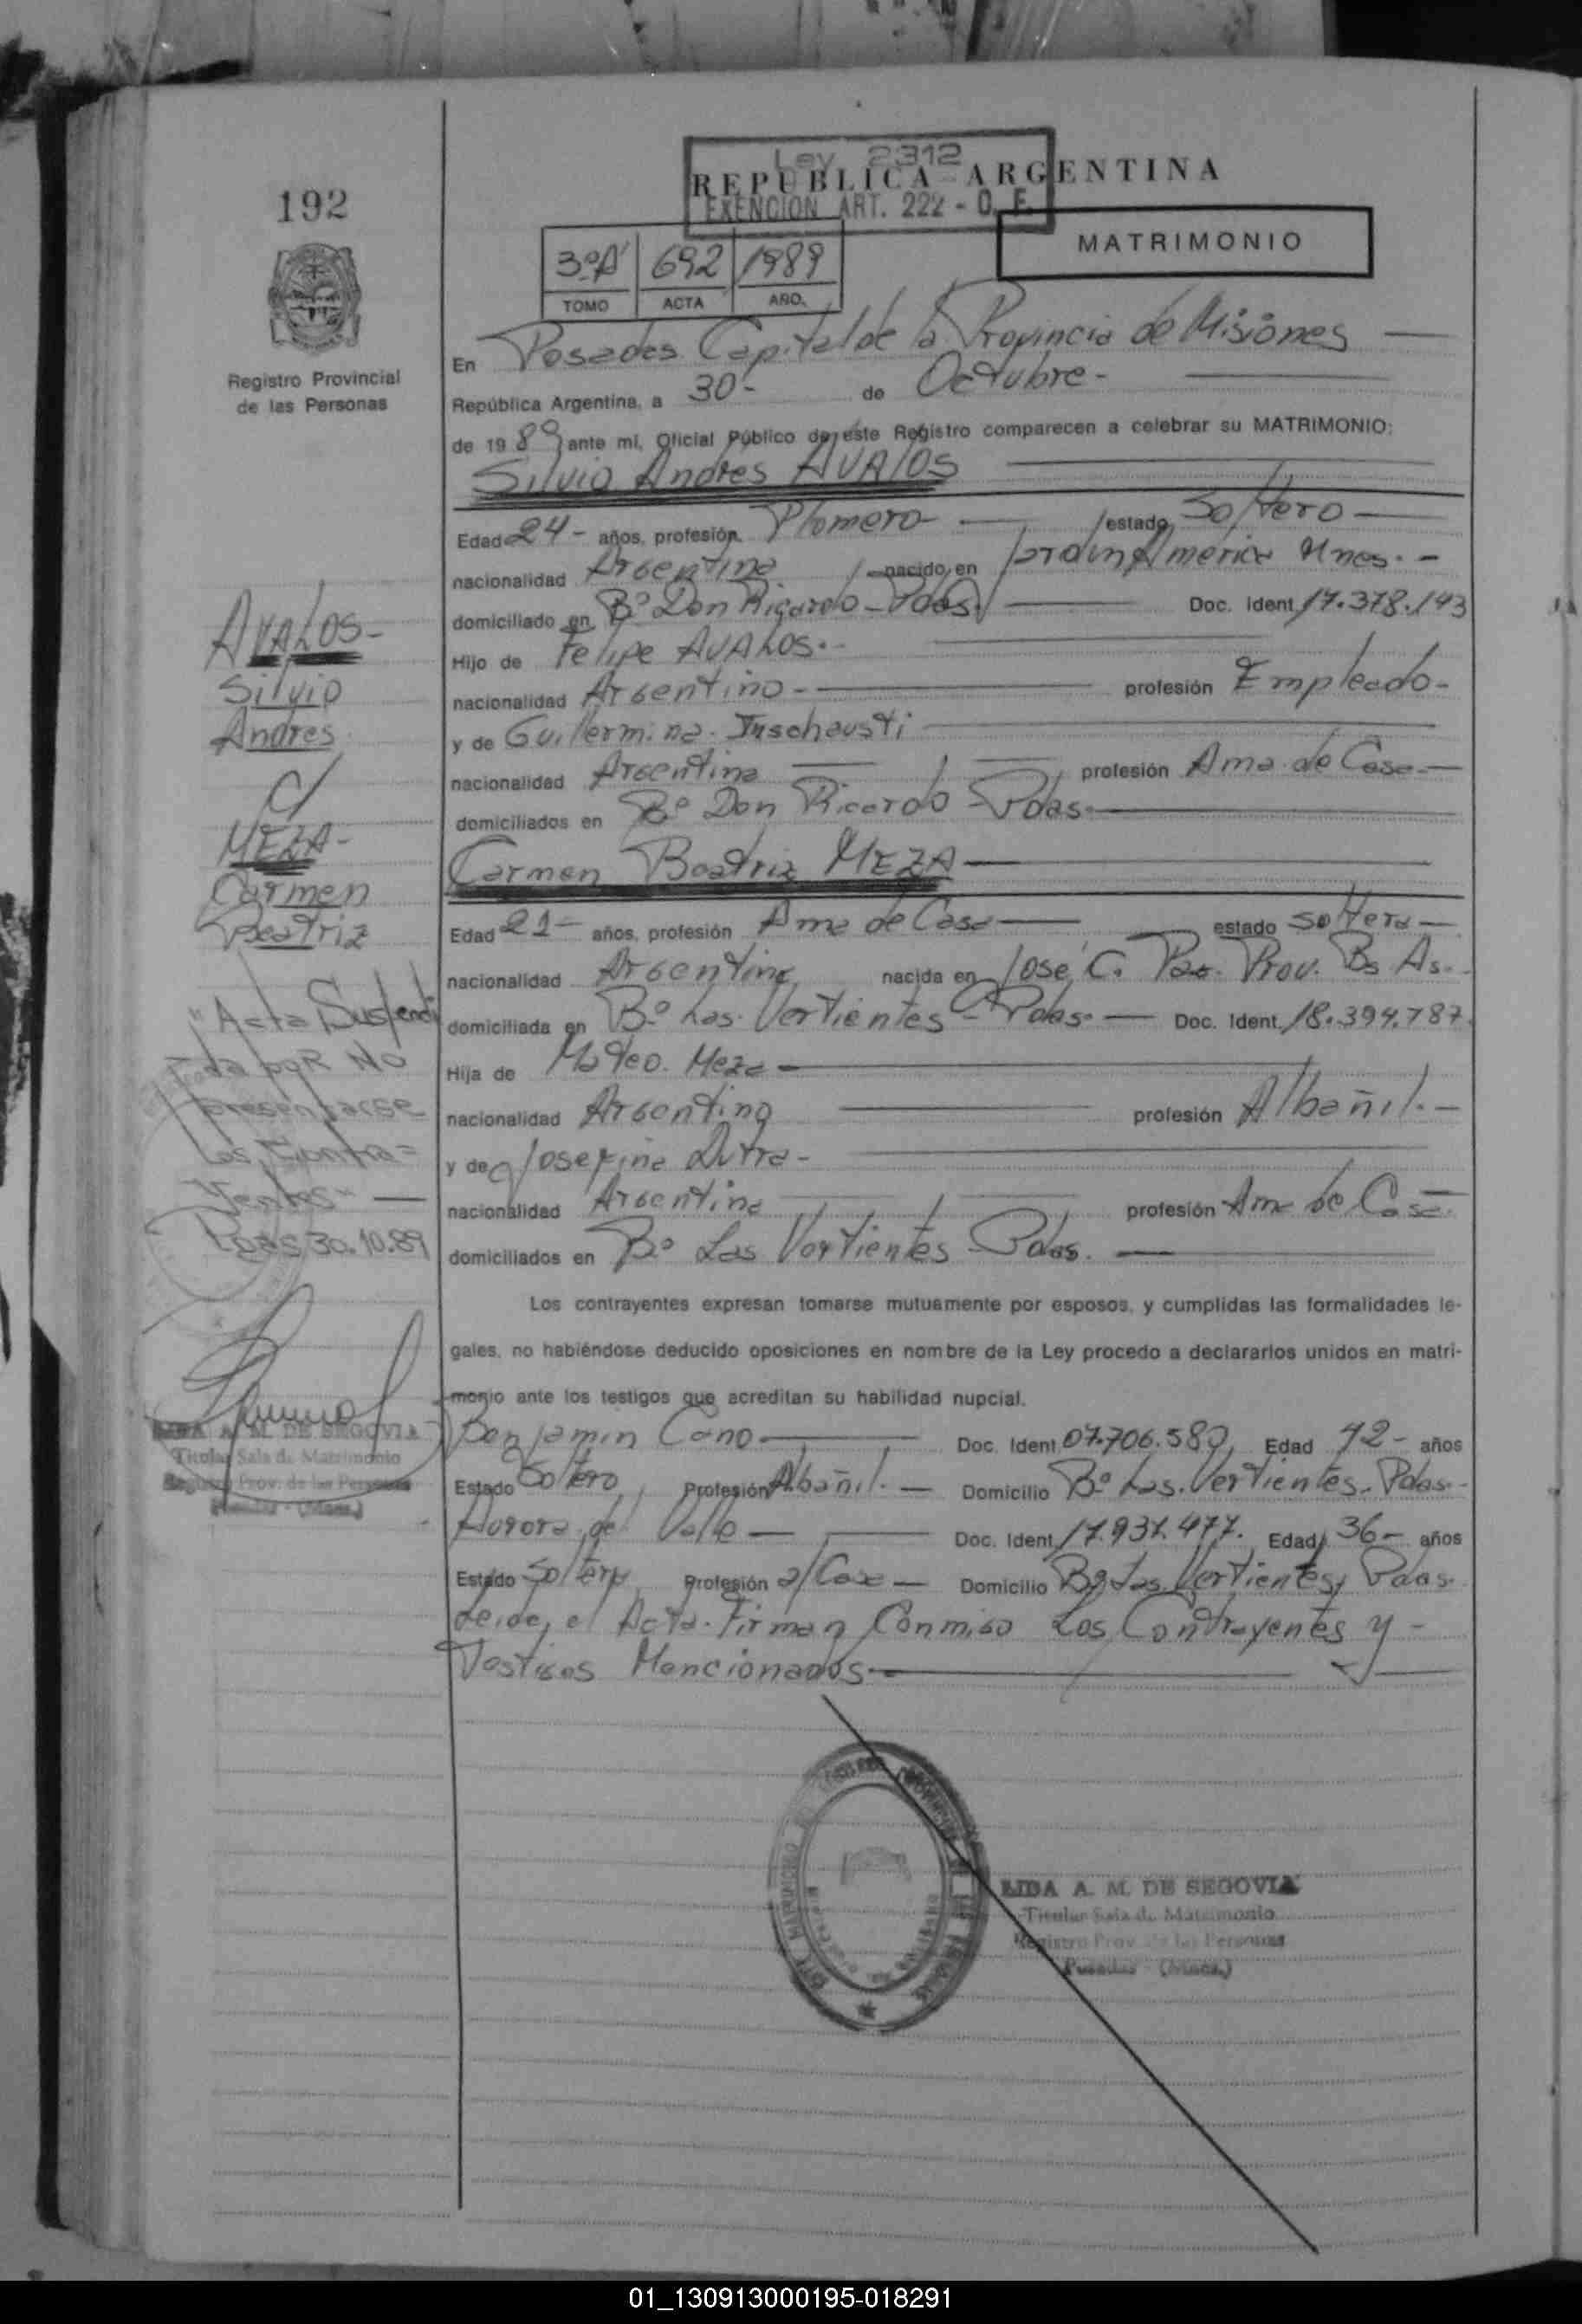 192
Ley 2312
REPUBLICA ARGENTINA
EXENCION ART. 222 - O. F.
MATRIMONIO
3ºA 692 1989
TOMO ACTA AÑO.
Registro Provincial
de las Personas
En Posadas Capital de la Provincia de Misiones
República Argentina, a 30- de Octubre-
de 1989 ante mí, Oficial Público de este Registro comparecen a celebrar su MATRIMONIO:
Silvio Andres AVALOS
Edad 24- años, profesión Plomero estado Soltero
nacionalidad Argentina nacido en Jardin América Mnes.-
domiciliado en Bº Don Ricardo-Pdas. Doc. Ident. 17.378.143
Hijo de Felipe AVALOS.-
nacionalidad Argentino- profesión Empleado-
y de Guillermina
nacionalidad Argentina profesión Ama de Casa-
domiciliados en Bº Don Ricardo-Pdas.
Carmen Beatriz MEZA
Edad 21- años, profesión Ama de Casa estado Soltera
nacionalidad Argentina nacida en José C. Paz. Prov. Bs As.-
domiciliada en Bº Las Vertientes-Pdas.- Doc. Ident. 18.394.787.
Hija de Mateo. Meza
nacionalidad Argentino profesión Albañil.-
y de Josefina Dutra-
nacionalidad Argentina profesión Ama de Casa.
domiciliados en Bº Las Vertientes-Pdas.
Los contrayentes expresan tomarse mutuamente por esposos, y cumplidas las formalidades le-
gales, no habiéndose deducido oposiciones en nombre de la Ley procedo a declararlos unidos en matri-
monio ante los testigos que acreditan su habilidad nupcial.
Benjamin Cano Doc. Ident. Edad 42- años
Estado Soltero, Profesión Albañil.- Domicilio Bº Las Vertientes-Pdas.-
Aurora del Valle Doc. Ident. 17.937.477. Edad 36- años
Estado Soltera Profesión a/Casa Domicilio Bº Las Vertientes, Pdas.
Leida, el Acta. Firman Conmigo Los Contrayentes y-
Testigos Mencionados.-
AVALOS-
Silvio
Andres
C/
MEZA-
Carmen
Beatriz
"Acta Suspendi
da poR No
presentarse
Los Contra=
yentes"
Pdas 30.10.89
LIDA A. M. DE SEGOVIA
Titular Sala de Matrimonio
Registro Prov. de las Personas
Posadas - (Mnes.)
LIDA A. M. DE SEGOVIA
Titular Sala de Matrimonio
Registro Prov. de las Personas
Posadas - (Mnes.)
01_130913000195-018291